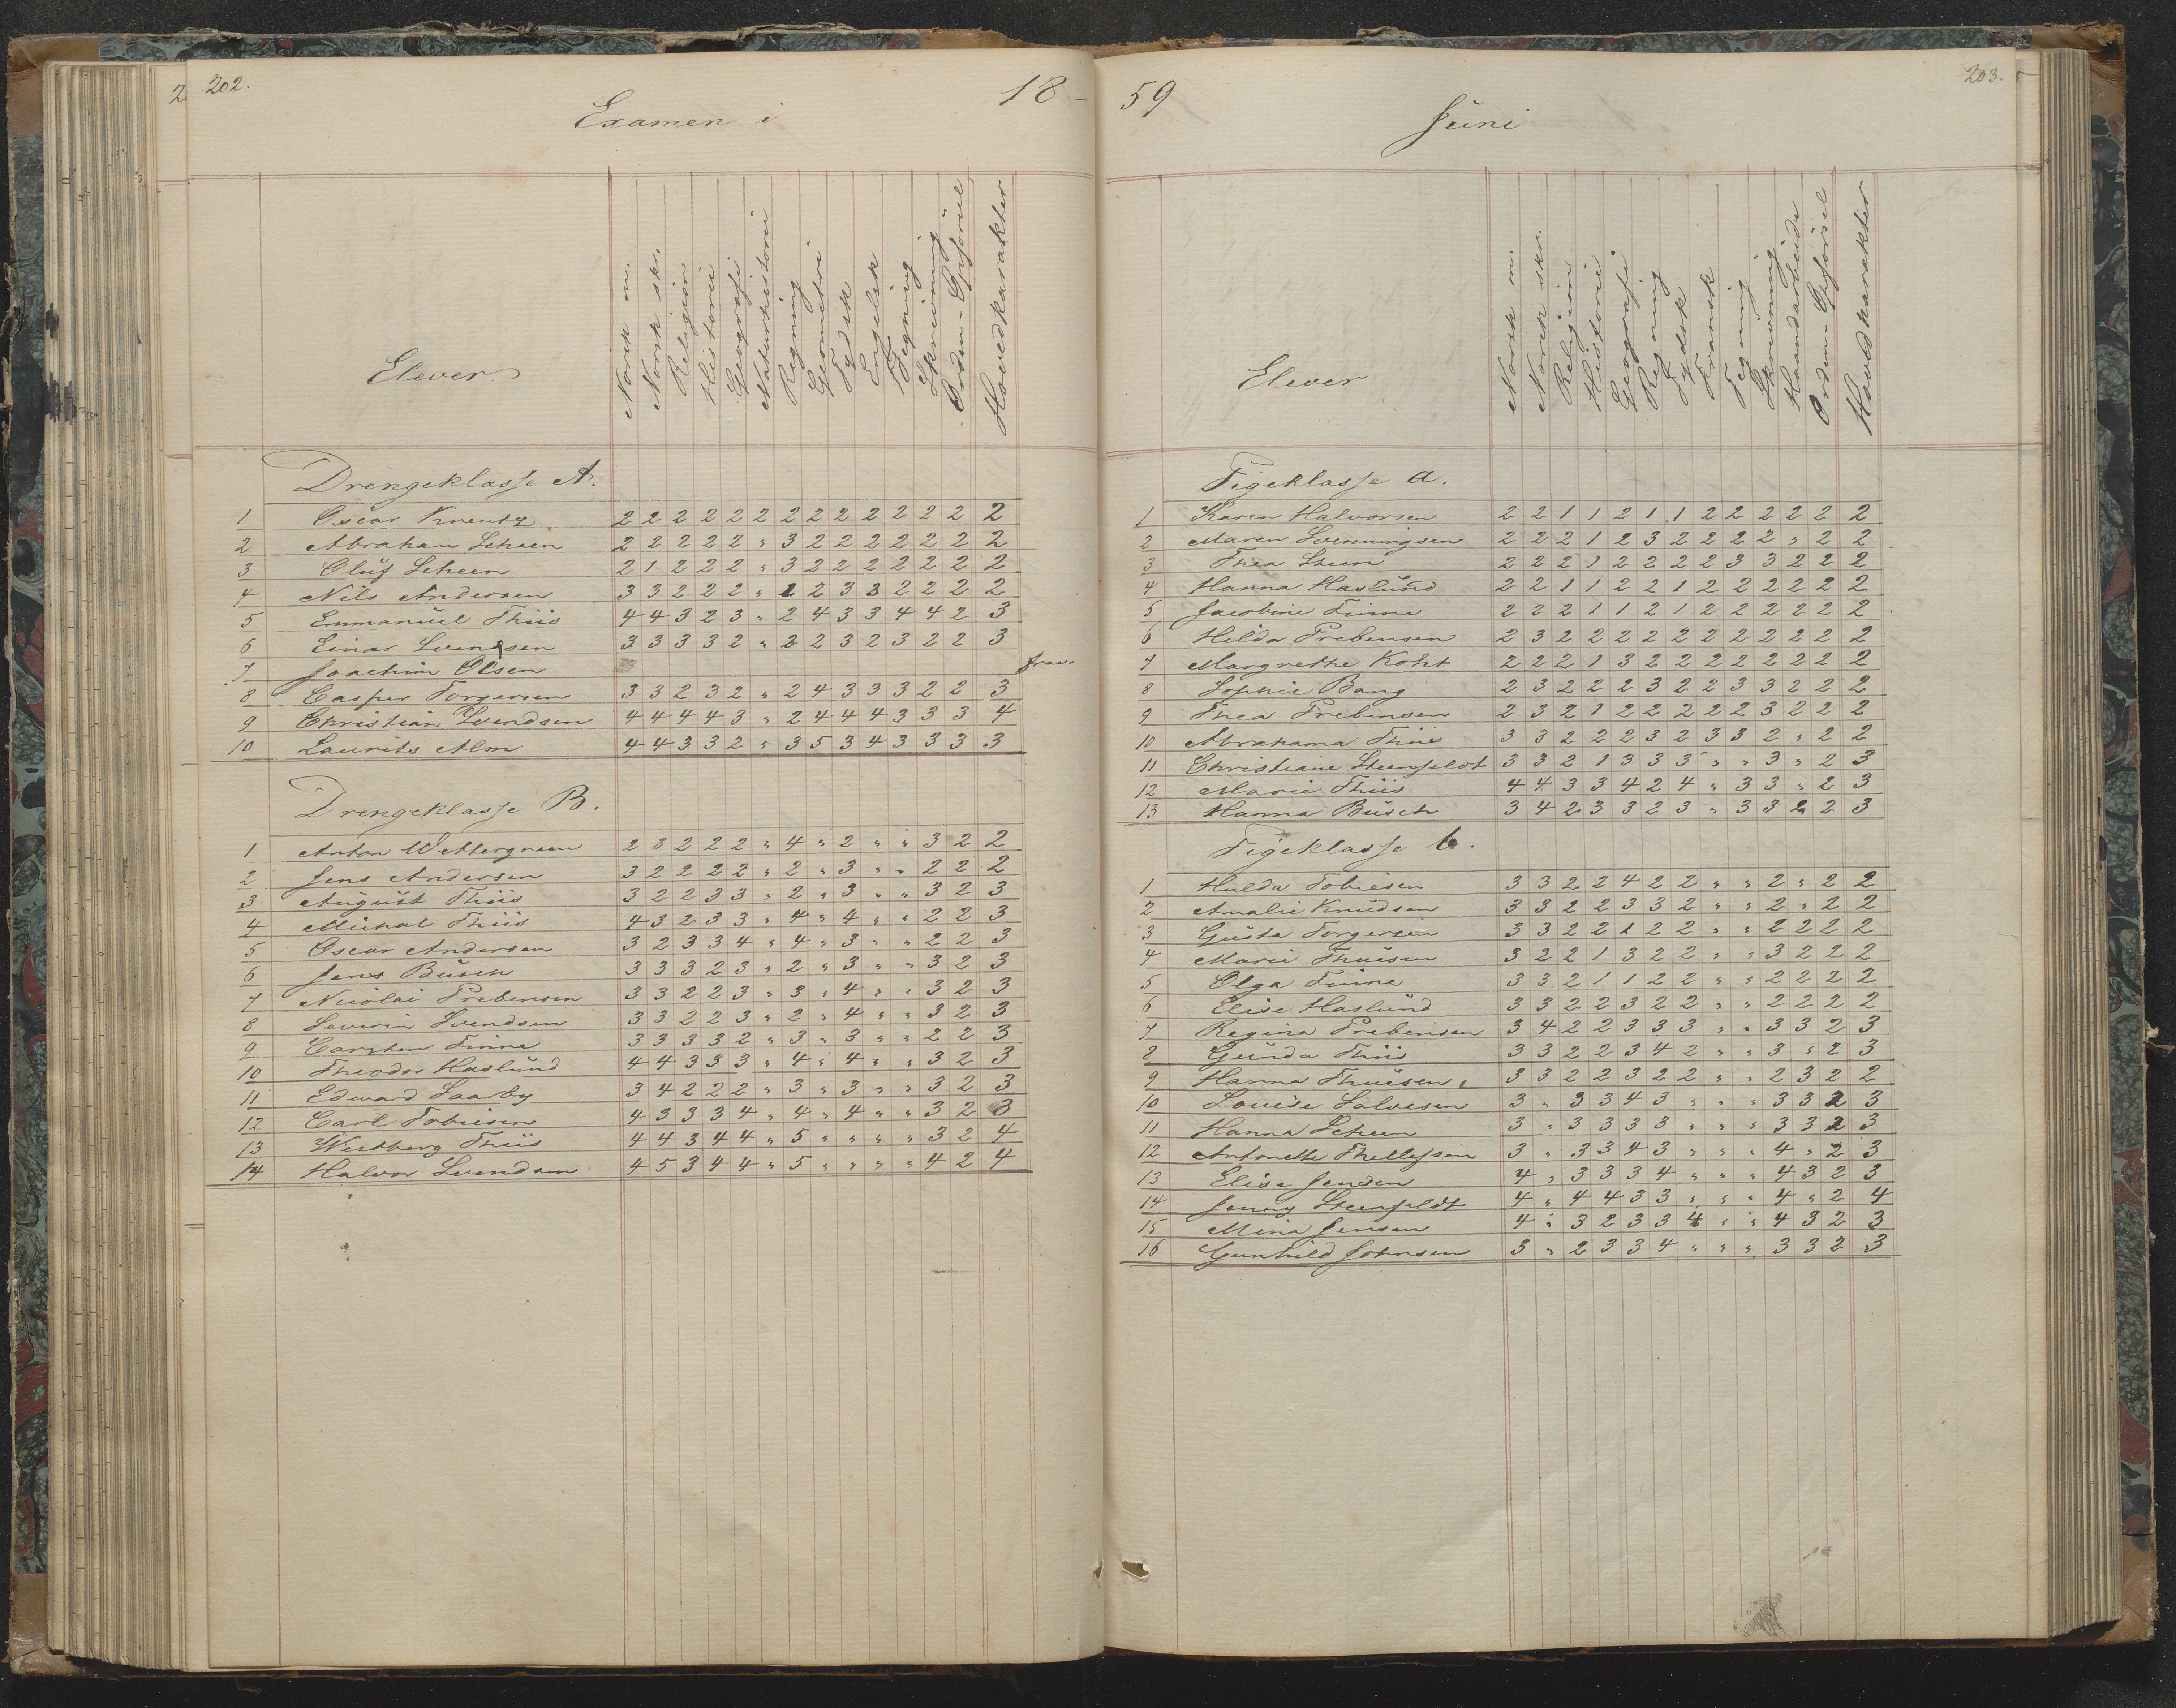 202.
18 –
Examen i
Elever
Norsk m.
Norsk skr.
Religion
Historie
Geografi
Naturhistorie
Regning
Geometri
Tydsk
Engelsk
Tegning
Skrivning
Orden – Opførsel
Hovedkarakter
Drengeklasse A.
1 Oscar Kreutz 2 2 2 2 2 2 2 2 2 2 2 2 2 2
2 Abraham Scheen 2 2 2 2 2 " 3 2 2 2 2 2 2 2
3 Oluf Scheen 2 1 2 2 2 " 3 2 2 2 2 2 2 2
4 Nils Andersen 3 3 2 2 2 " 1 2 3 3 2 2 2 2
5 Emmanuel Thiis 4 4 3 2 3 " 2 4 3 3 4 4 2 3
6 Einar Svendsen 3 3 3 3 2 " 2 2 3 2 3 2 2 3
7 Joachim Olsen frav.
8 Casper Torgersen 3 3 2 3 2 " 2 4 3 3 3 2 2 3
9 Christian Svendsen 4 4 4 4 3 " 2 4 4 4 3 3 3 4
10 Laurits Alm 4 4 3 3 2 " 3 5 3 4 3 3 3 3
Drengeklasse B.
1 Anton Wettergreen 2 3 2 2 2 " 4 " 2 " " 3 2 2
2 Jens Andersen 3 2 2 2 2 " 2 " 3 " " 2 2 2
3 August Thiis 3 2 2 3 3 " 2 " 3 " " 3 2 3
4 Michal Thiis 4 3 2 3 3 " 4 " 4 " " 2 2 3
5 Oscar Andersen 3 2 3 3 4 " 4 " 3 " " 2 2 3
6 Jens Busch 3 3 3 2 3 " 2 " 3 " " 3 2 3
7 Nicolai Prebensen 3 3 2 2 3 " 3 " 4 " " 3 2 3
8 Severin Svendsen 3 3 2 2 3 " 2 " 4 " " 3 2 3
9 Carsten Finne 3 3 3 3 2 " 3 " 3 " " 2 2 3
10 Theodor Haslund 4 4 3 3 3 " 4 " 4 " " 3 2 3
11 Edward Saarby 3 4 2 2 2 " 3 " 3 " " 3 2 3
12 Carl Tobiesen 4 3 3 3 4 " 4 " 4 " " 3 2 3
13 Westberg Thiis 4 4 3 4 4 " 5 " " " " 3 2 4
14 Halvor Svendsen 4 5 3 4 4 " 5 " " " " 4 2 4
59
203.
Juni
Elever
Norsk m.
Norsk skr.
Religion
Historie
Geografi
Regning
Tydsk
Fransk
Tegning
Skrivning
Haandarbeide
Orden – Opførsel
Hovedkarakter
Pigeklasse a.
1 Karen Halvorsen 2 2 1 1 2 1 1 2 2 2 2 2 2
2 Maren Svenningsen 2 2 2 1 2 3 2 2 2 2 " 2 2
3 Thea Steen 2 2 2 1 2 2 2 2 3 3 2 2 2
4 Hanna Haslund 2 2 1 1 2 2 1 2 2 2 2 2 2
5 Jacobine Finne 2 2 2 1 1 2 1 2 2 2 2 2 2
6 Hilda Prebensen 2 3 2 2 2 2 2 2 2 2 2 2 2
7 Margrethe Koht 2 2 2 1 3 2 2 2 2 2 2 2 2
8 Sophie Bang 2 3 2 2 2 3 2 2 3 3 2 2 2
9 Thea Prebensen 2 3 2 1 2 2 2 2 2 3 2 2 2
10 Abrahama Thiis 3 3 2 2 2 3 2 3 3 2 " 2 2
11 Christiane Steenfeldt 3 3 2 1 3 3 3 " " 3 " 2 3
12 Marie Thiis 4 4 3 3 4 2 4 " 3 3 " 2 3
13 Hanna Busch 3 4 2 3 3 2 3 " 3 3 2 2 3
Pigeklasse b.
1 Hulda Tobiesen 3 3 2 2 4 2 2 " " 2 " 2 2
2 Amalie Knudsen 3 3 2 2 3 3 2 " " 2 " 2 2
3 Gusta Torgersen 3 3 2 2 1 2 2 " " 2 2 2 2
4 Marie Thuesen 3 2 2 1 3 2 2 " " 3 2 2 2
5 Olga Finne 3 3 2 1 1 2 2 " " 2 2 2 2
6 Elise Haslund 3 3 2 2 3 2 2 " " 2 2 2 2
7 Regina Prebensen 3 4 2 2 3 3 3 " " 3 3 2 3
8 Gunda Thiis 3 3 2 2 3 4 2 " " 3 " 2 3
9 Hanna Thuesen 3 3 2 2 3 2 2 " " 2 3 2 2
10 Louise Salvesen 3 " 3 3 4 3 " " " 3 3 2 3
11 Hanna Scheen 3 " 3 3 3 3 " " " 3 3 2 3
12 Antonette Thellefsen 3 " 3 3 4 3 " " " 4 " 2 3
13 Elise Jensen 4 " 3 3 3 4 " " " 4 3 2 3
14 Jenny Steenfeldt 4 " 4 4 3 3 " " " 4 " 2 4
15 Mina Jensen 4 " 3 2 3 3 4 " " 4 3 2 3
16 Gunhild Johnsen 3 " 2 3 3 4 " " " 3 3 2 3